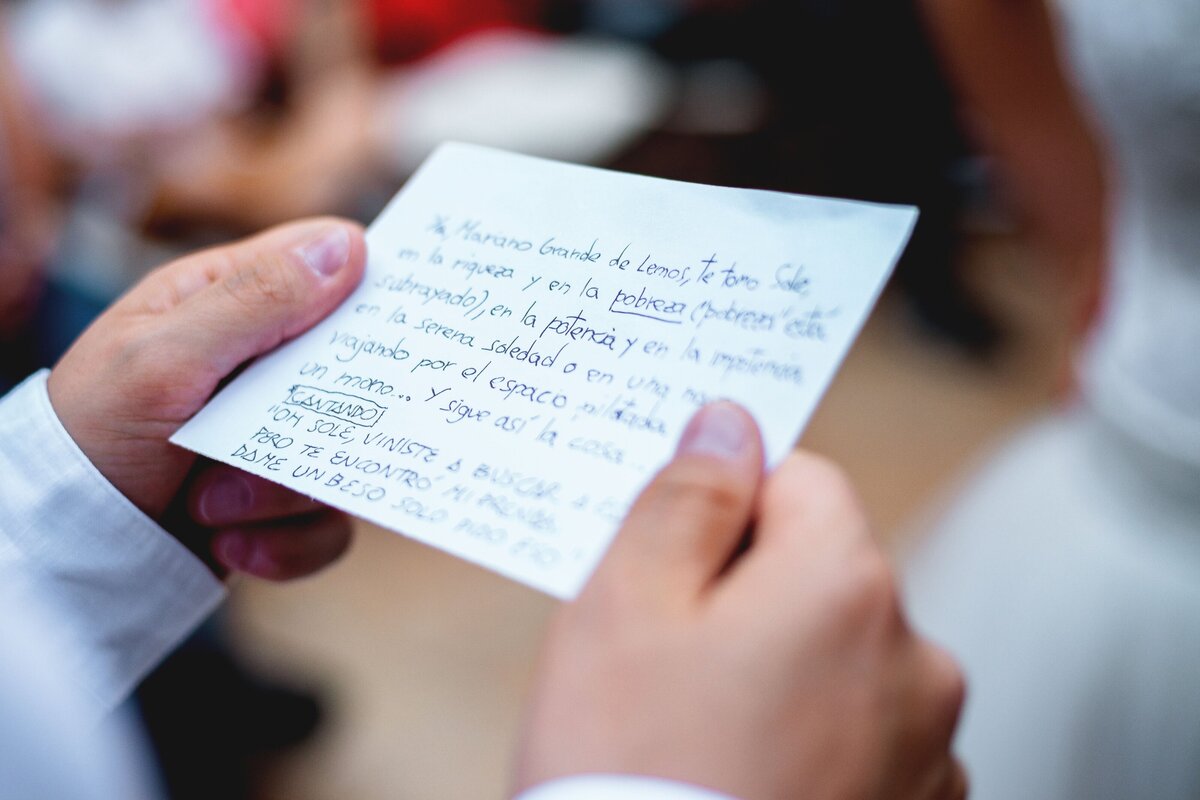 Yo, Mariano Grande de Lemos, te tomo Sole,
en la riqueza y en la pobreza ("pobreza" está
subrayado), en la potencia y en la impotencia,
en la serena soledad o en una
viajando por el espacio pilotada
un mono... Y sigue así la cosa...
CANTANDO
"OH SOLE, VINISTE A BUSCAR A
PERO TE ENCONTRÓ MI
DAME UN BESO SOLO PIDO ESO"